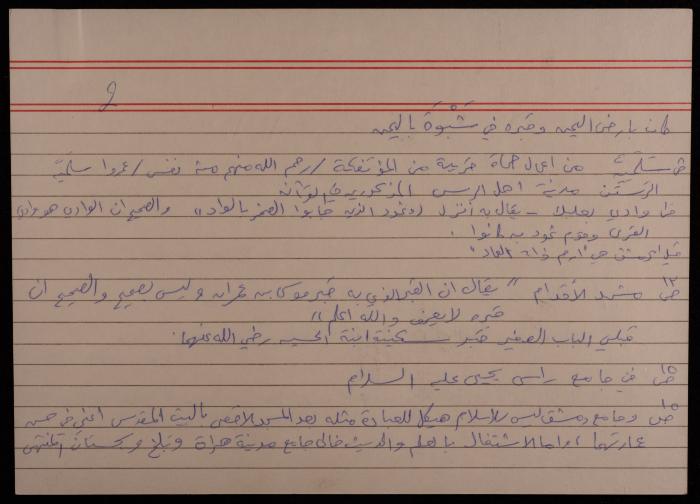 2
كان بارض اليمن وقبره في شَبْوَة باليمن
سَلَميَّة من اعمال حماة قريبة من المؤتفكة / رحم الله منهم مئة نفس / عمروا سلميَّة
الرَسْتَن مدينة اهل الرس المذكورين في القرآن
وادي بعلبك - يقال به أُنزل "وثمود الذين جابوا الصخر بالواد" والصحيح ان الوادي هو وادي
القرى وقوم ثمود به كانوا .
قيل دمشق هي "ارم ذات العماد"
ص ١٢ مشهد الأقدام " يقال ان القبر الذي به قبر موسى بن عمران وليس بصحيح والصحيح ان
قبره لا يعرف والله اعلم "
قبلي الباب الصغير قبر سكينة ابنة الحسين رضي الله عنهما .
ص ١٥ في جامع راس يحيى عليه السلام
ص ١٥ وجامع دمشق ليس للاسلام هيكل للعبادة مثله بعد المسجد الاقصى بالبيت المقدس اعني في حسن
عمارتهما ، واما الاشتغال بالعلم والحديث فالى جامع مدينة هراة وبلخ وسجستان المنتهى